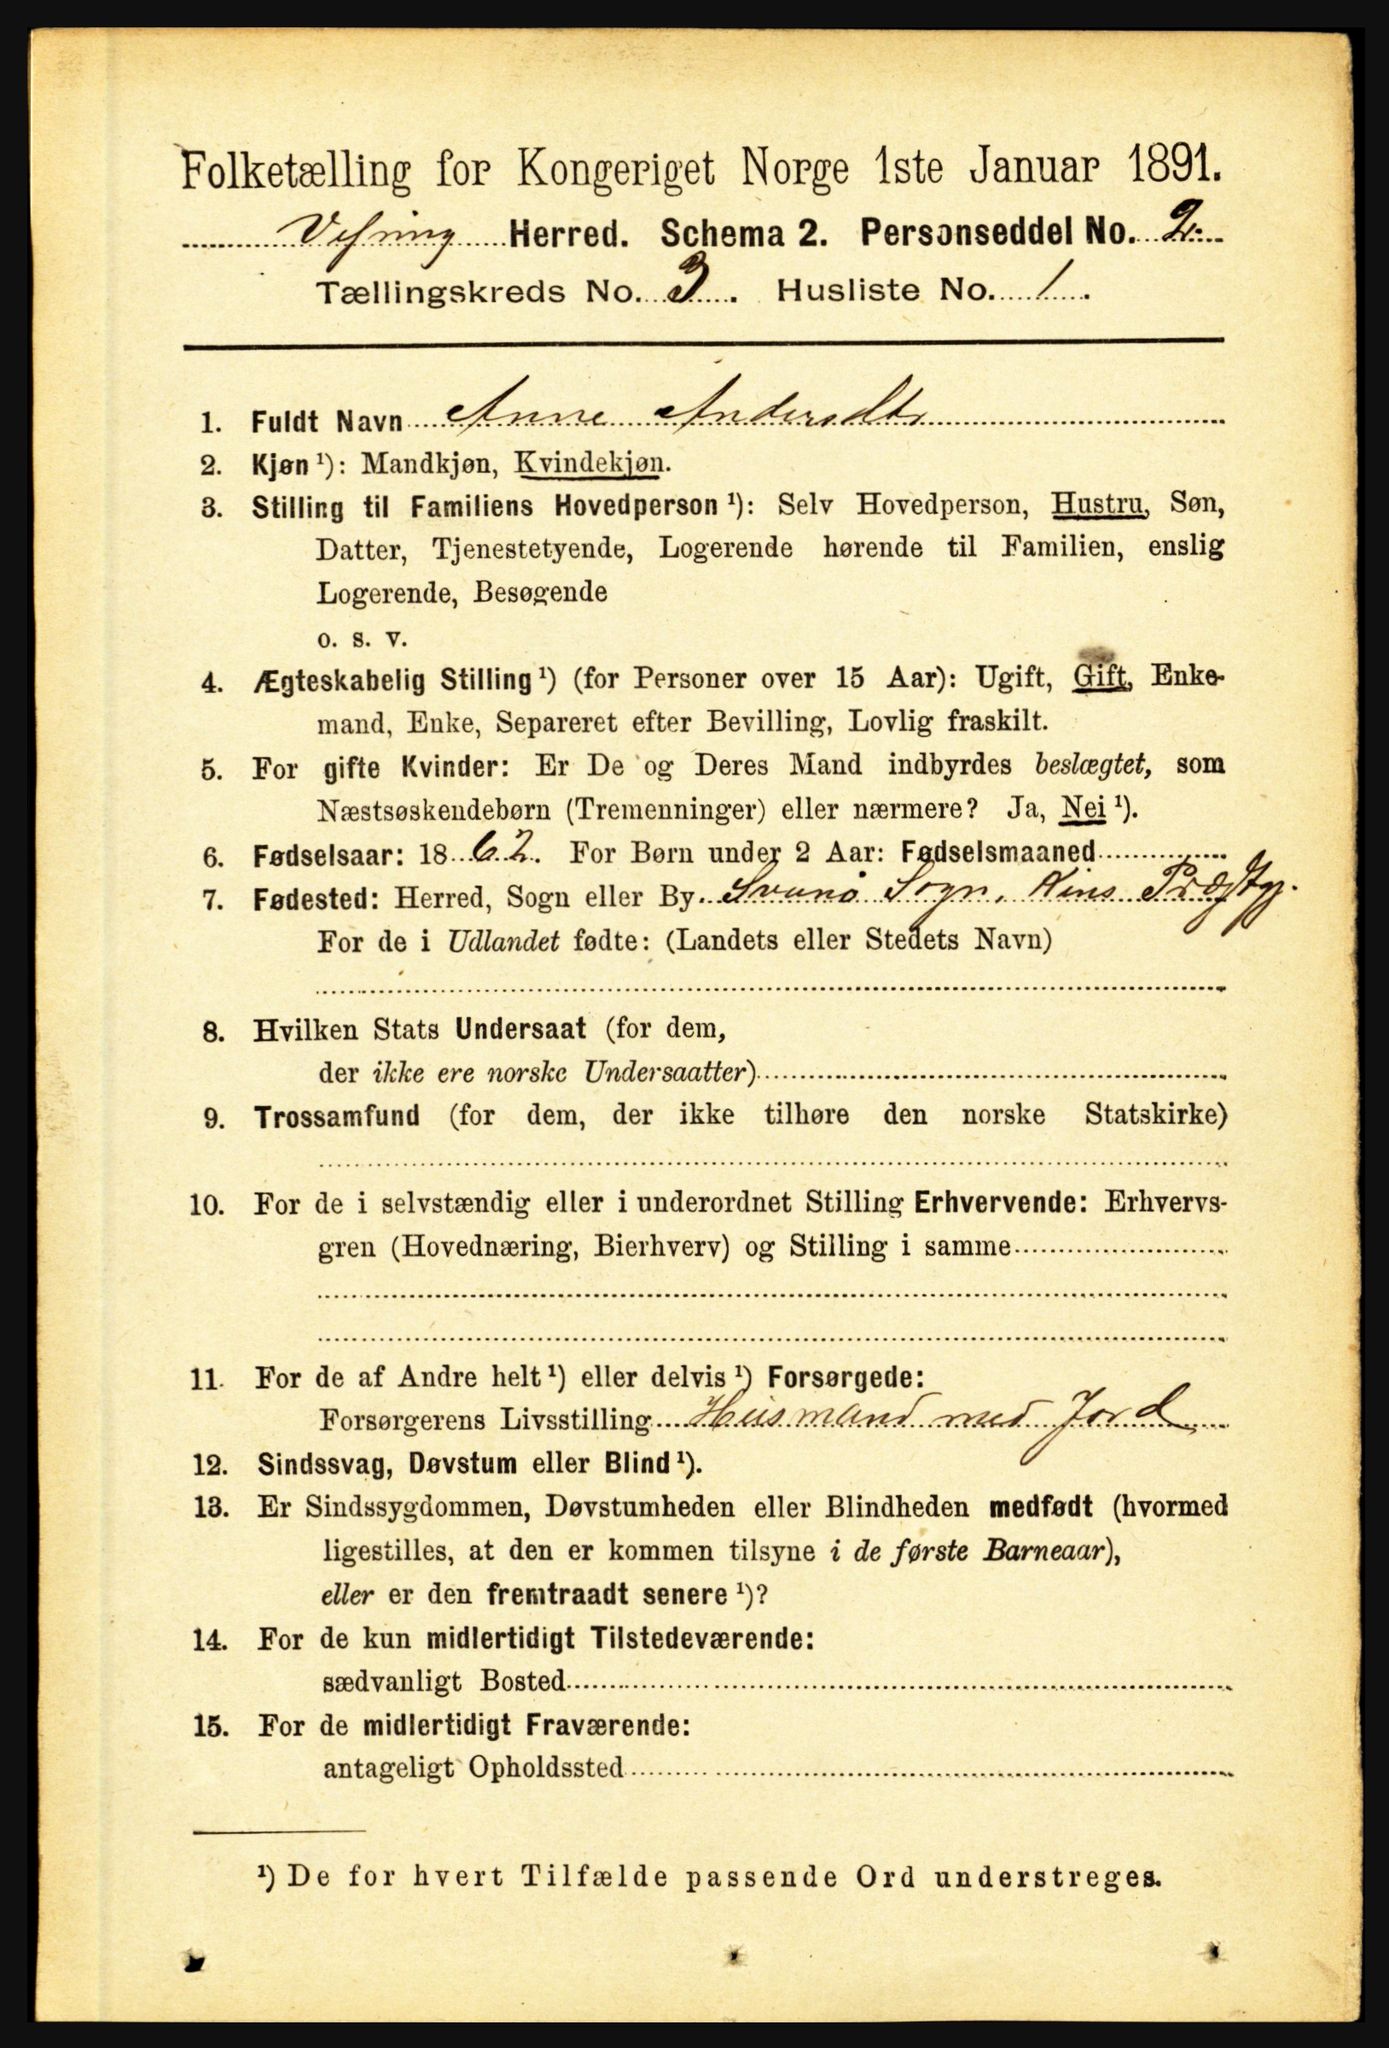 Folketælling for Kongeriget Norge 1ste Januar 1891.
Vefring Herred. Schema 2. Personseddel No. 2.
Tællingskreds No. 3. Husliste No. 1.
1. Fuldt Navn Anne Andersdtr
2. Kjøn ¹): Mandkjøn, Kvindekjøn.
3. Stilling til Familiens Hovedperson ¹): Selv Hovedperson, Hustru, Søn,
Datter, Tjenestetyende, Logerende hørende til Familien, enslig
Logerende, Besøgende
o. s. v.
4. Ægteskabelig Stilling ¹) (for Personer over 15 Aar): Ugift, Gift, Enke-
mand, Enke, Separeret efter Bevilling, Lovlig fraskilt.
5. For gifte Kvinder: Er De og Deres Mand indbyrdes beslægtet, som
Næstsøskendebørn (Tremenninger) eller nærmere? Ja, Nei ¹).
6. Fødselsaar: 1862. For Børn under 2 Aar: Fødselsmaaned
7. Fødested: Herred, Sogn eller By. Svanø Sogn, Kins Præstgj.
For de i Udlandet fødte: (Landets eller Stedets Navn)
8. Hvilken Stats Undersaat (for dem,
der ikke ere norske Undersaatter)
9. Trossamfund (for dem, der ikke tilhøre den norske Statskirke)
10. For de i selvstændig eller i underordnet Stilling Erhvervende: Erhvervs-
gren (Hovednæring, Bierhverv) og Stilling i samme
11. For de af Andre helt ¹) eller delvis ¹) Forsørgede:
Forsørgerens Livsstilling Husmand med Jord
12. Sindssvag, Døvstum eller Blind ¹).
13. Er Sindssygdommen, Døvstumheden eller Blindheden medfødt (hvormed
ligestilles, at den er kommen tilsyne i de første Barneaar),
eller er den fremtraadt senere ¹)?
14. For de kun midlertidigt Tilstedeværende:
sædvanligt Bosted
15. For de midlertidigt Fraværende:
antageligt Opholdssted
¹) De for hvert Tilfælde passende Ord understreges.